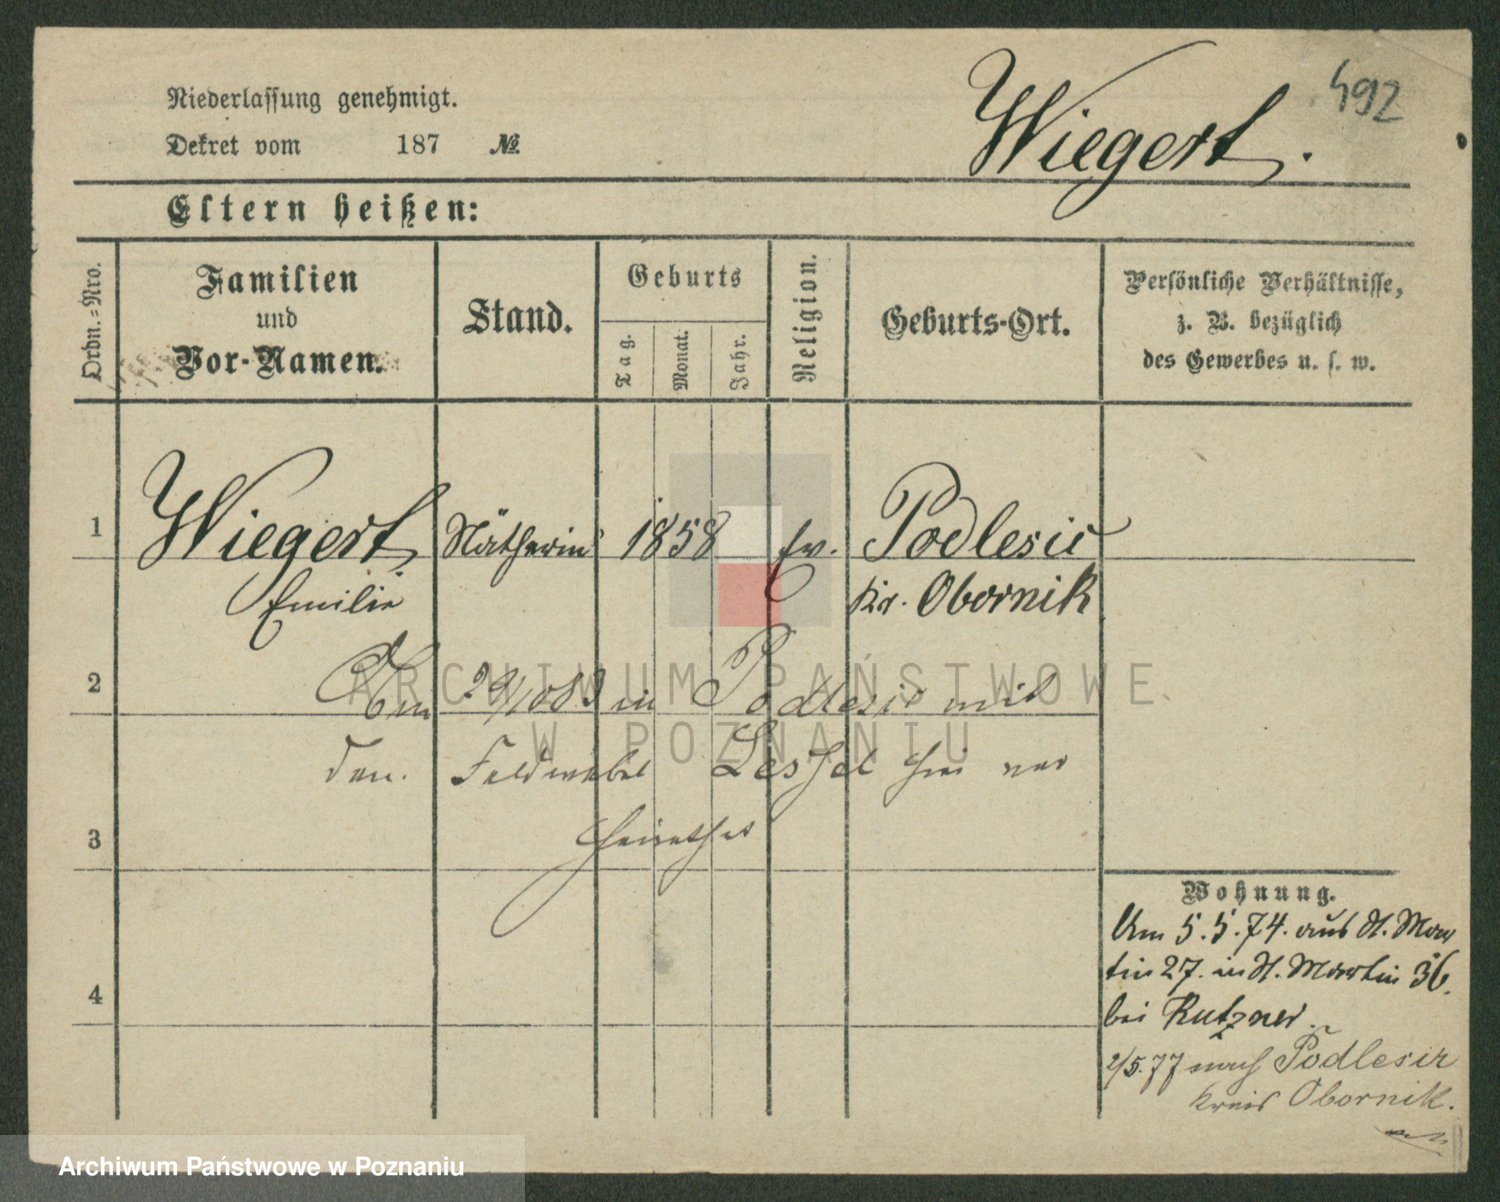 492
Niederlassung genehmigt.
Dekret vom 187 №
Wiegert.
Eltern heißen:
Ordn.-Nro.
Familien
und
Vor-Namen.
Stand.
Geburts
Tag.
Monat.
Jahr.
Religion.
Geburts-Ort.
Persönliche Verhältnisse,
z. B. bezüglich
des Gewerbes u. s. w.
1 Wiegert Nätherin 1858 Ev. Podlesie
Emilie Kr. Obornik
2 in Podlesie mit
den Feldwebel hier ver
heirathet
3
4
Wohnung.
Um 5.5.74. aus St. Mar
tin 27. in St. Martin 36.
bei Rutzner.
2/5.77 nach Podlesie
Kreis Obornik.
ARCHIWUM PAŃSTWOWE
W POZNANIU
Archiwum Państwowe w Poznaniu